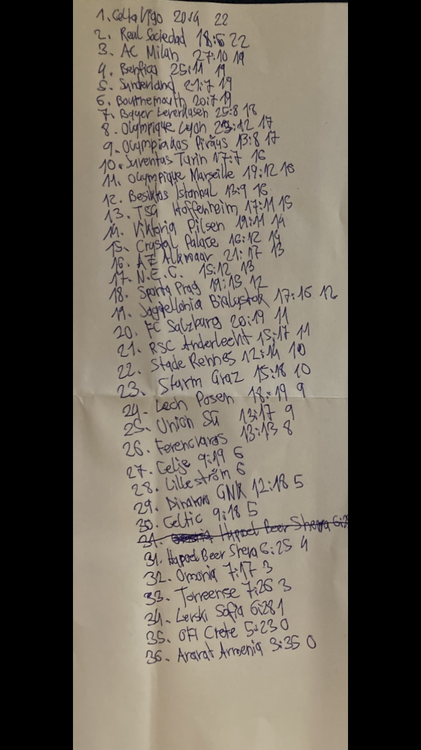 1. Celta Vigo 20:4 22
2. Real Sociedad 18:6 22
3. AC Milan 27:10 19
4. Benfica 25:11 19
5. Sunderland 21:7 19
6. Bournemouth 20:7 19
7. Bayer Leverkusen 25:8 18
8. Olympique Lyon 23:12 17
9. Olympiakos Piräus 13:8 17
10. Juventus Turin 17:7 16
11. Olympique Marseille 19:12 16
12. Besiktas Istanbul 13:9 16
13. TSG Hoffenheim 17:11 15
14. Viktoria Pilsen 19:11 14
15. Crystal Palace 16:12 14
16. AZ Alkmaar 21:17 13
17. N.E.C. 15:12 13
18. Sparta Prag 19:15 12
19. Jagiellonia Bialystok 17:16 12
20. FC Salzburg 20:19 11
21. RSC Anderlecht 15:17 11
22. Stade Rennes 12:14 10
23. Sturm Graz 15:18 10
24. Lech Posen 18:19 9
25. Union SG 13:17 9
26. Ferencvaros 13:13 8
27. Celje 9:19 6
28. Lilleström 6
29. Dinamo GNK 12:18 5
30. Celtic 9:18 5
31. Hapoel Beer Sheva 6:2
31. Hapoel Beer Sheva 6:25 4
32. Omonia 7:17 3
33. Torreense 7:26 3
34. Levski Sofia 6:28 1
35. OFI Crete 5:23 0
36. Ararat Armenia 3:35 0